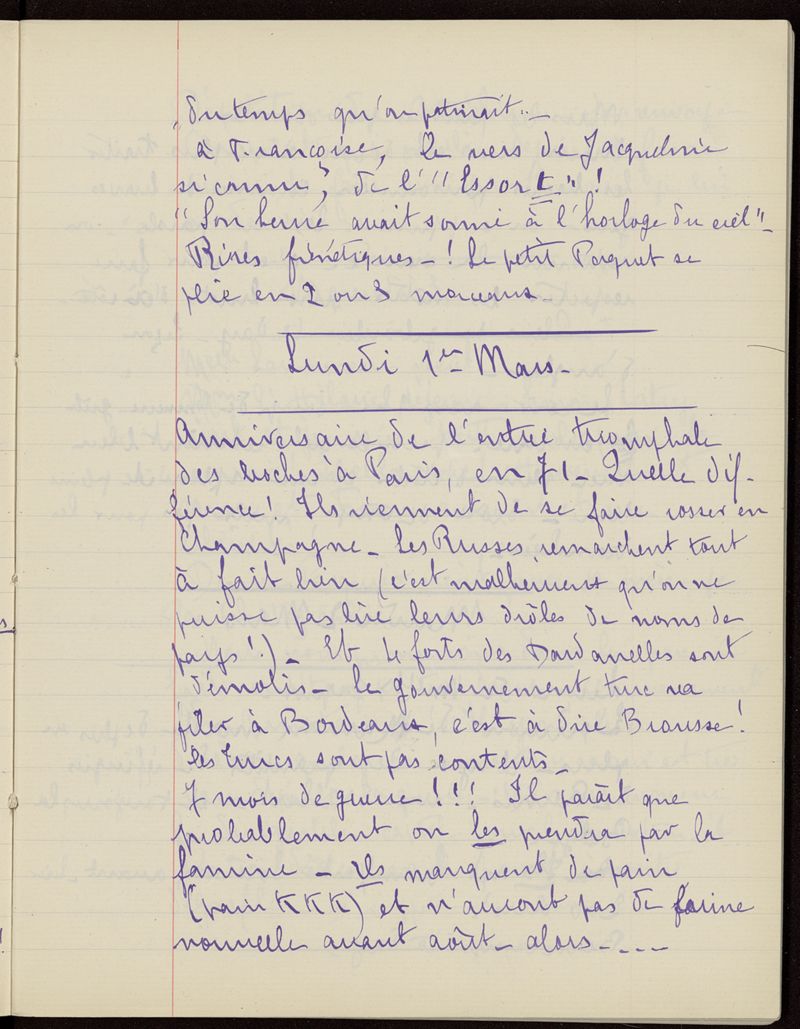 "du temps qu'on patinait" _
à Françoise, le vers de Jacqueline
si connu, de l'"Essort" !
"Son heure avait sonné à l'horloge du ciel" _
Rires frénétiques _ ! Le petit Paquet se
plie en 2 ou 3 morceaux
Lundi 1er Mars _
Anniversaire de l'entrée triomphale
des boches à Paris, en 71 _ Quelle dif-
férence ! Ils viennent de se faire rosser en
Champagne _ Les Russes remarchent tout
à fait bien (c'est malheureux qu'on ne
puisse pas lire leurs drôles de noms de
pays !) _ Et 4 forts des Dardanelles sont
démolis _ le gouvernement turc va
filer à Bordeaux, c'est à dire Brousse !
les turcs sont pas contents _
7 mois de guerre ! ! ! Il paraît que
probablement on les prendra par la
famine _ Ils manquent de pain
(pain KKK) et n'auront pas de farine
nouvelle avant août _ alors _ . . . .